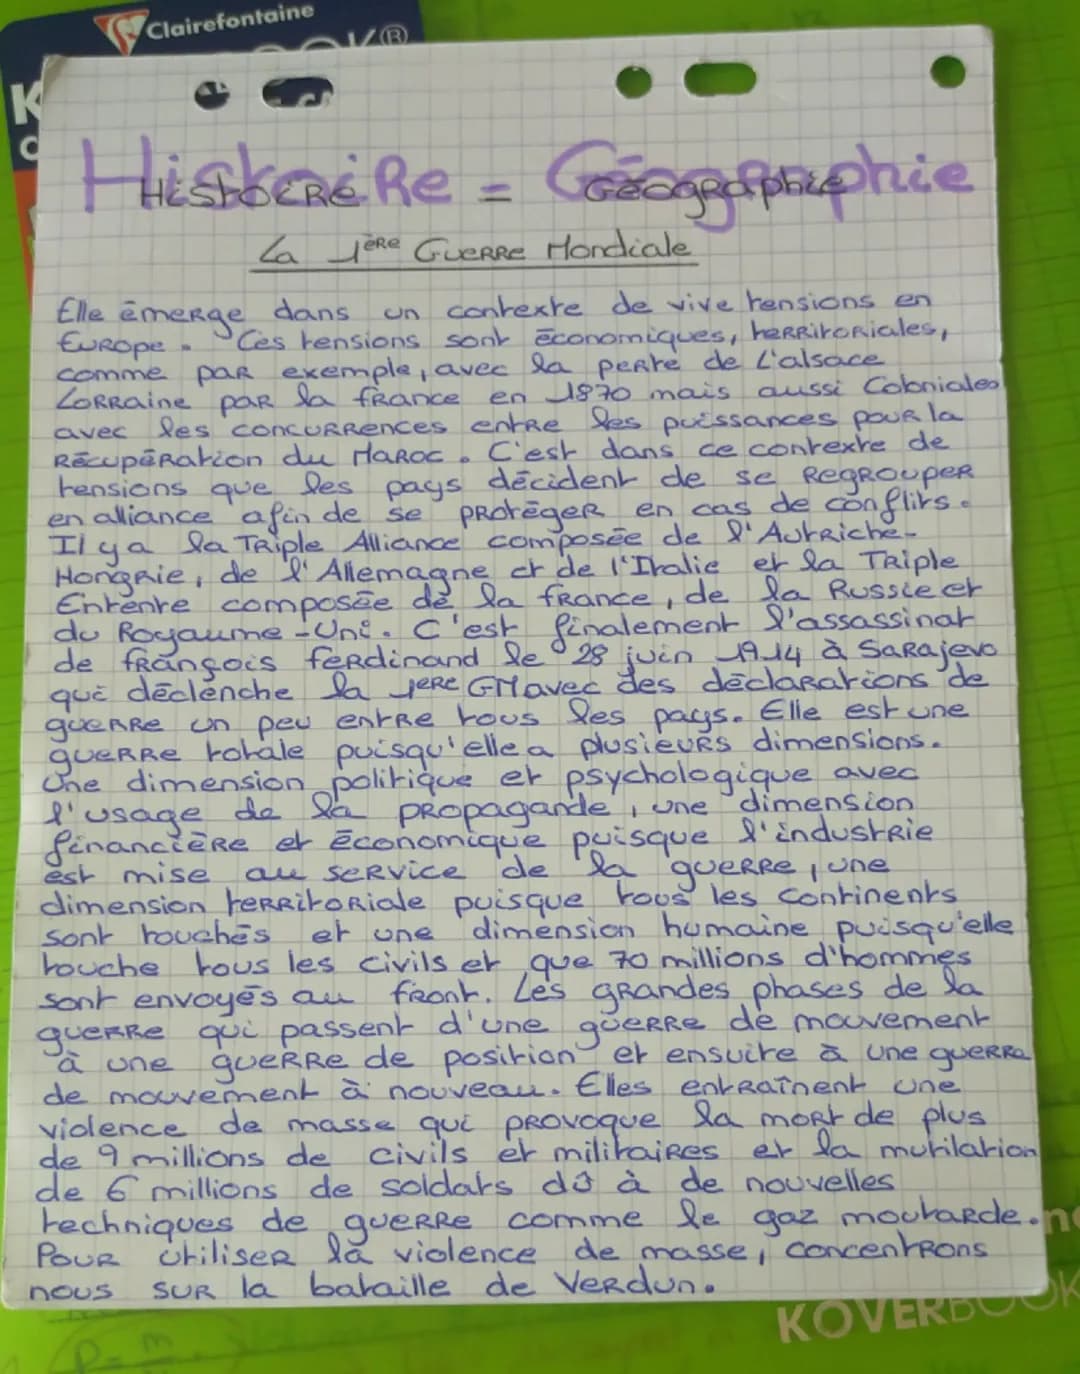 Clairefontaine
HistoiRe = GéogRaphie
HistoiRe GéogRaphie
La 1èRe GueRRe Mondiale
Elle émeRge dans un contexte de vive tensions en
EuRope. Ces tensions sont économiques, teRRitoRiales,
comme paR exemple, avec la peRte de L'alsace
LoRRaine paR la fRance en 1870 mais aussi Coloniales
avec les concuRRences entRe les puissances pouR la
RécupéRation du MaRoc. C'est dans ce contexte de
tensions que les pays décident de se RegRoupeR
en alliance afin de se pRotégeR en cas de conflits.
Il y a la TRiple Alliance composée de l'AutRiche-
HongRie, de l'Allemagne et de l'Italie et la TRiple
Entente composée de la fRance, de la Russie et
du Royaume-Uni. C'est finalement l'assassinat
de fRançois feRdinand le 28 juin 1914 à SaRajevo
qui déclenche la 1eRe GM avec des déclaRations de
gueRRe un peu entRe tous les pays. Elle est une
gueRRe totale puisqu'elle a plusieuRs dimensions.
Une dimension politique et psychologique avec
l'usage de la pRopagande, une dimension
financièRe et économique puisque l'industRie
est mise au seRvice de la gueRRe, une
dimension teRRitoRiale puisque tous les continents
sont touchés et une dimension humaine puisqu'elle
touche tous les civils et que 70 millions d'hommes
sont envoyés au fRont. Les gRandes phases de la
gueRRe qui passent d'une gueRRe de mouvement
à une gueRRe de position et ensuite à une gueRRe
de mouvement à nouveau. Elles entRaînent une
violence de masse qui pRovoque la moRt de plus
de 9 millions de civils et militaiRes et la mutilation
de 6 millions de soldats dû à de nouvelles
techniques de gueRRe comme le gaz moutaRde.
PouR utiliseR la violence de masse, concentRons
nous suR la bataille de VeRdun.
KOVERBOOK
P = m